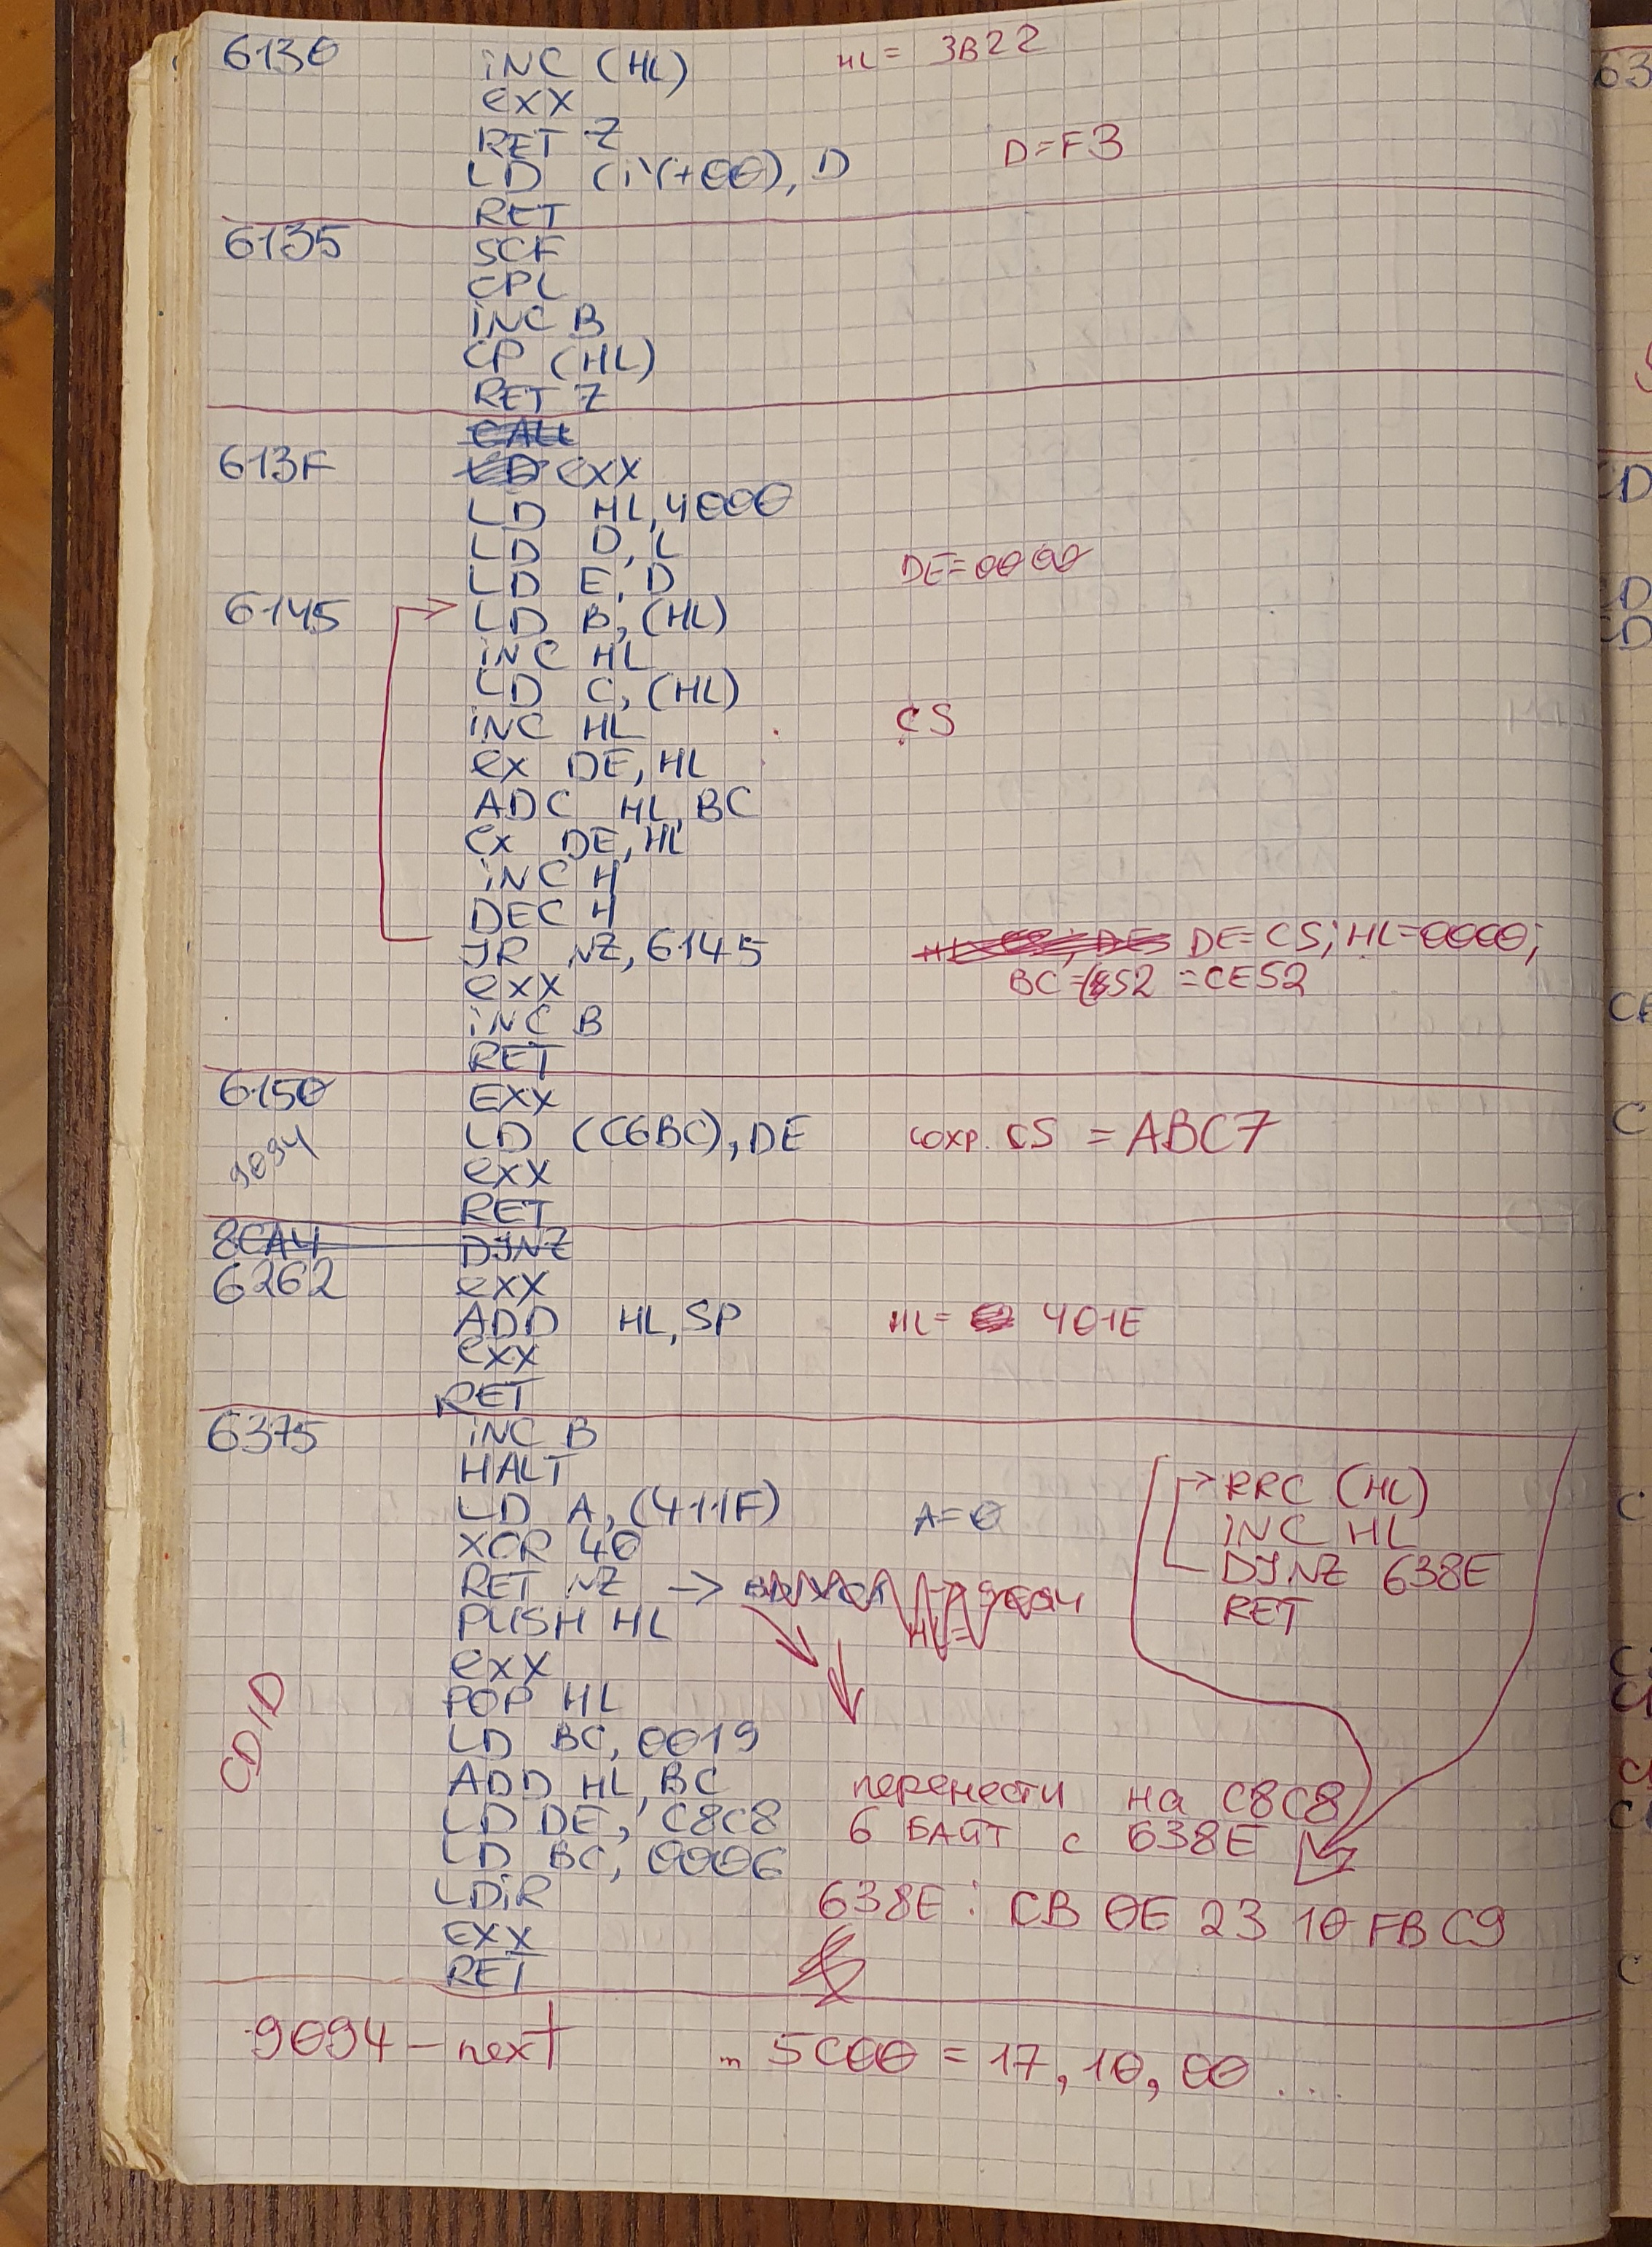 6130 INC (HL) HL = 3B22
EXX
RET Z
LD (IY+00), D D=F3
RET
6135 SCF
CPL
INC B
CP (HL)
RET Z
CALL
613F LD EXX
LD HL, 4000
LD D, L
LD E, D DE=0000
6145 LD B, (HL)
INC HL
LD C, (HL)
INC HL CS
EX DE, HL
ADC HL, BC
EX DE, HL
INC H
DEC H
JR NZ, 6145 DE=CS; HL=0000;
EXX BC= 52 = CE52
INC B
RET
6150 EXX
9094 LD (C6BC), DE сохр. CS = ABC7
EXX
RET
8CA4 DJNZ
6262 EXX
ADD HL, SP HL= 401E
EXX
RET
6375 INC B
HALT
LD A, (411F) A=0
XOR 40
RET NZ →
PUSH HL
EXX
POP HL
CD1D
LD BC, 0019
ADD HL, BC
LD DE, C8C8
LD BC, 0006
LDIR
EXX
RET
RRC (HL)
INC HL
DJNZ 638E
RET
перенести на C8C8
6 БАЙТ с 638E
638E: CB 0E 23 10 FB C9
9094 – next 5C00 = 17, 10, 00 ...